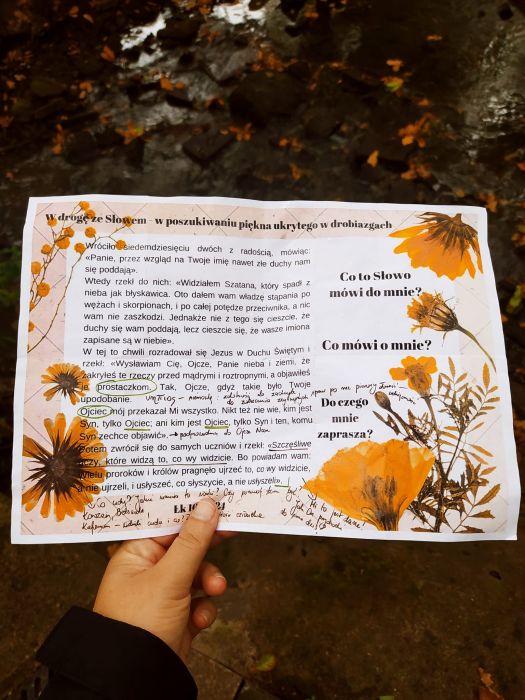 W drogę ze Słowem – w poszukiwaniu piękna ukrytego w drobiazgach
Wróciło siedemdziesięciu dwóch z radością, mówiąc:
«Panie, przez wzgląd na Twoje imię nawet złe duchy nam
się poddają».
Wtedy rzekł do nich: «Widziałem Szatana, który spadł z
nieba jak błyskawica. Oto dałem wam władzę stąpania po
wężach i skorpionach, i po całej potędze przeciwnika, a nic
wam nie zaszkodzi. Jednakże nie z tego się cieszcie, że
duchy się wam poddają, lecz cieszcie się, że wasze imiona
zapisane są w niebie».
W tej to chwili rozradował się Jezus w Duchu Świętym i
rzekł: «Wysławiam Cię, Ojcze, Panie nieba i ziemi, że
zakryłeś te rzeczy przed mądrymi i roztropnymi, a objawiłeś
je prostaczkom. Tak, Ojcze, gdyż takie było Twoje
upodobanie.
Ojciec mój przekazał Mi wszystko. Nikt też nie wie, kim jest
Syn, tylko Ojciec; ani kim jest Ojciec, tylko Syn i ten, komu
Syn zechce objawić».
Potem zwrócił się do samych uczniów i rzekł: «Szczęśliwe
oczy, które widzą to, co wy widzicie. Bo powiadam wam:
Wielu proroków i królów pragnęło ujrzeć to, co wy widzicie,
a nie ujrzeli, i usłyszeć, co słyszycie, a nie usłyszeli».
Łk 10
24
Co to Słowo
mówi do mnie?
Co mówi o mnie?
Do czego
mnie
zaprasza?